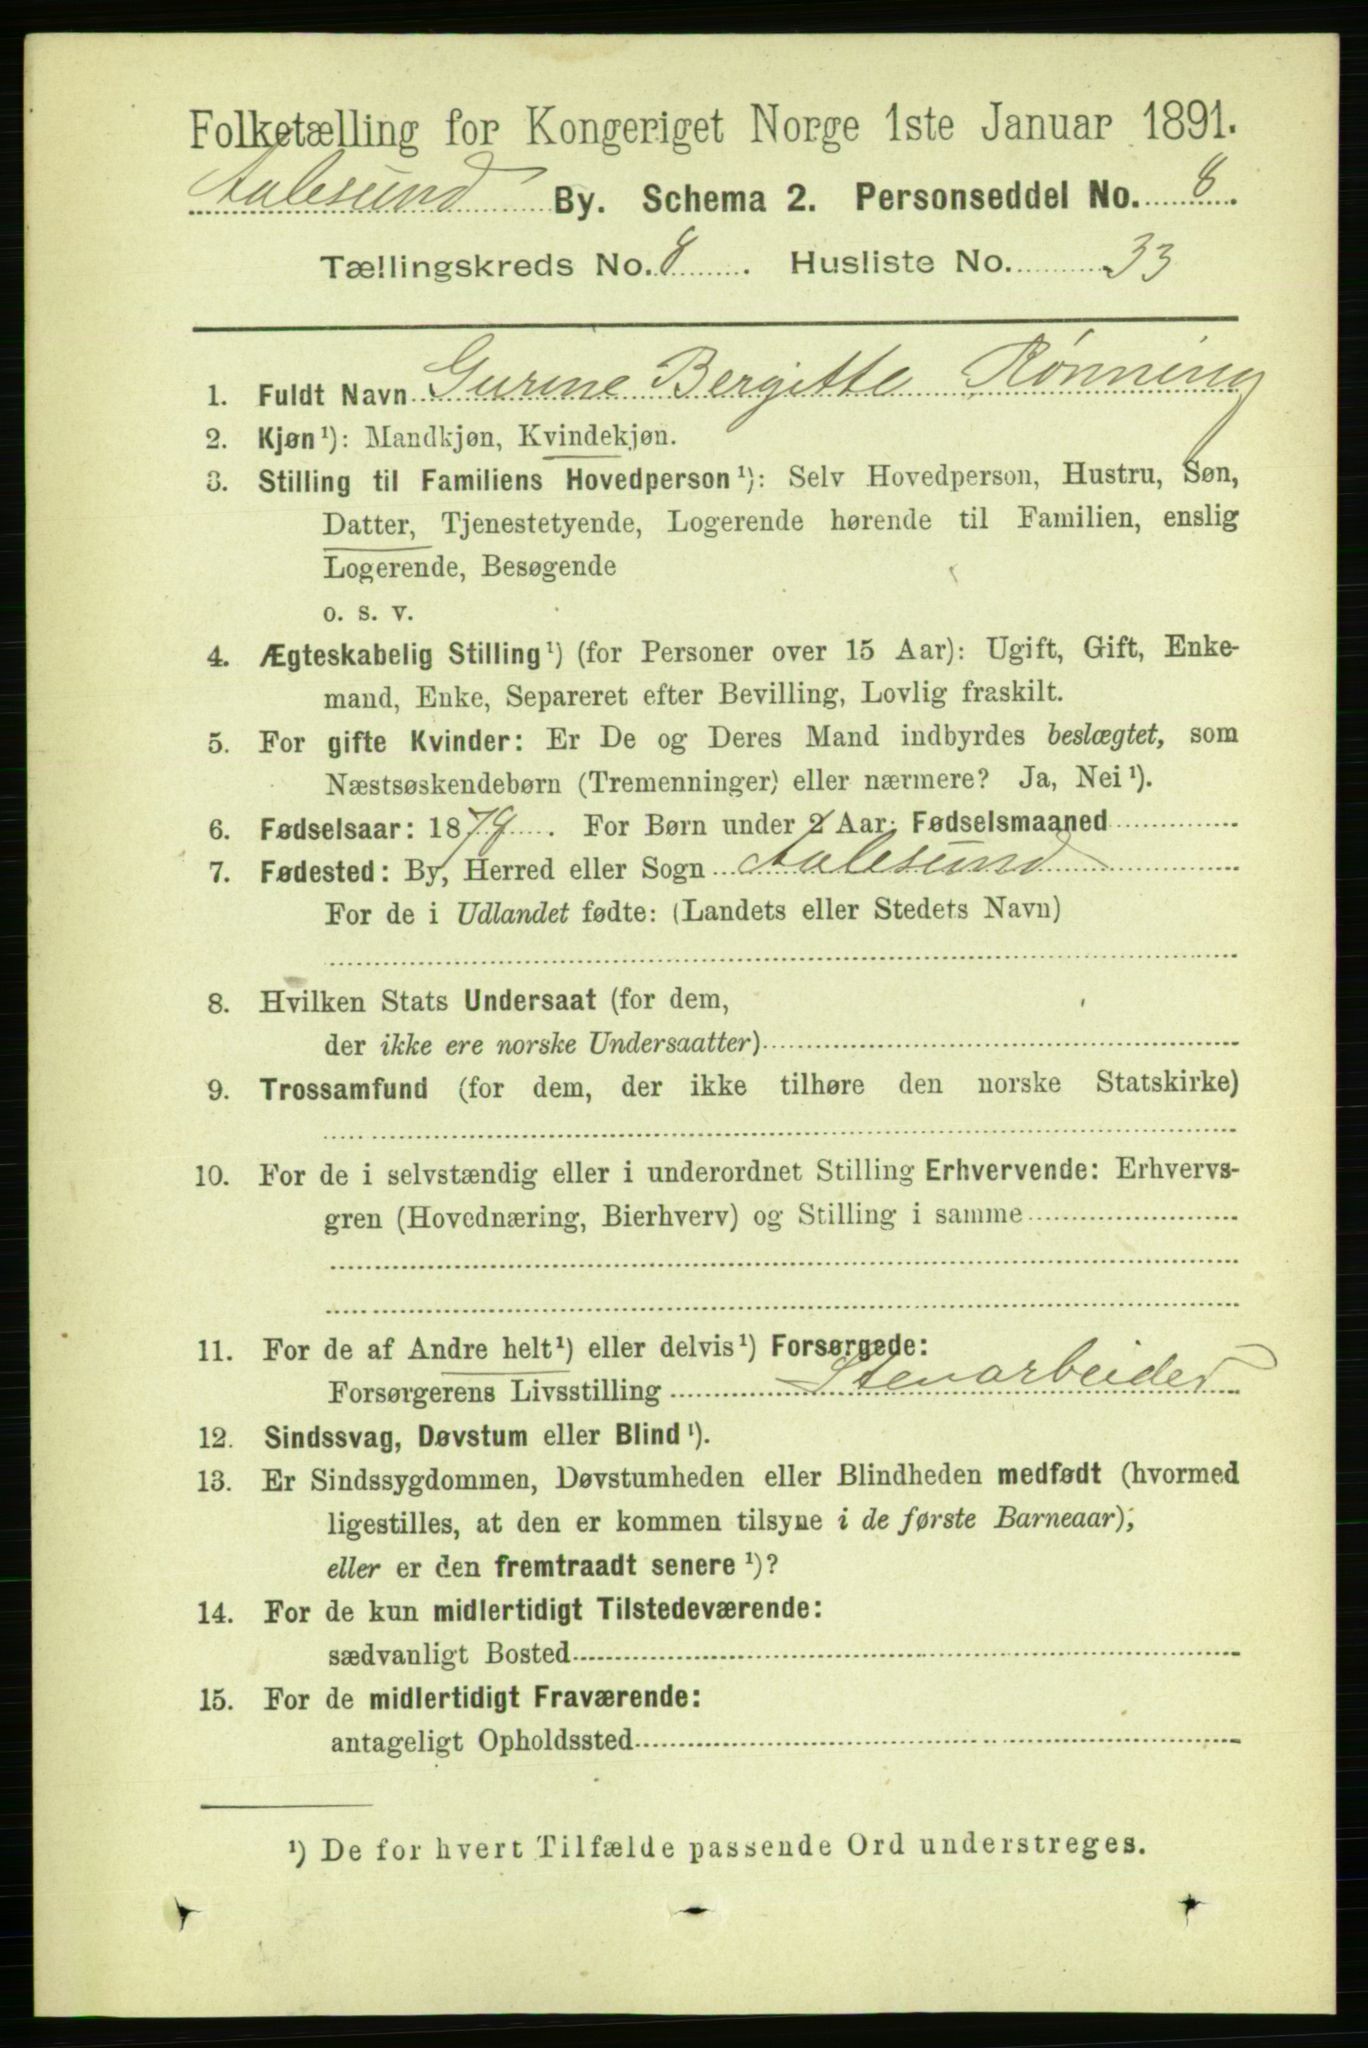 Folketælling for Kongeriget Norge 1ste Januar 1891.
Aalesund By. Schema 2. Personseddel No. 8.
Tællingskreds No. 8. Husliste No. 33
1. Fuldt Navn Gurine Bergitte Rønning
2. Kjøn¹): Mandkjøn, Kvindekjøn.
3. Stilling til Familiens Hovedperson¹): Selv Hovedperson, Hustru, Søn,
Datter, Tjenestetyende, Logerende hørende til Familien, enslig
Logerende, Besøgende
o. s. v.
4. Ægteskabelig Stilling¹) (for Personer over 15 Aar): Ugift, Gift, Enke-
mand, Enke, Separeret efter Bevilling, Lovlig fraskilt.
5. For gifte Kvinder: Er De og Deres Mand indbyrdes beslægtet, som
Næstsøskendebørn (Tremenninger) eller nærmere? Ja, Nei¹).
6. Fødselsaar: 1879. For Børn under 2 Aar: Fødselsmaaned
7. Fødested: By, Herred eller Sogn Aalesund
For de i Udlandet fødte: (Landets eller Stedets Navn)
8. Hvilken Stats Undersaat (for dem,
der ikke ere norske Undersaatter)
9. Trossamfund (for dem, der ikke tilhøre den norske Statskirke)
10. For de i selvstændig eller i underordnet Stilling Erhvervende: Erhvervs-
gren (Hovednæring, Bierhverv) og Stilling i samme
11. For de af Andre helt¹) eller delvis¹) Forsørgede:
Forsørgerens Livsstilling Stenarbeider
12. Sindssvag, Døvstum eller Blind¹).
13. Er Sindssygdommen, Døvstumheden eller Blindheden medfødt (hvormed
ligestilles, at den er kommen tilsyne i de første Barneaar),
eller er den fremtraadt senere¹)?
14. For de kun midlertidigt Tilstedeværende:
sædvanligt Bosted
15. For de midlertidigt Fraværende:
antageligt Opholdssted
¹) De for hvert Tilfælde passende Ord understreges.